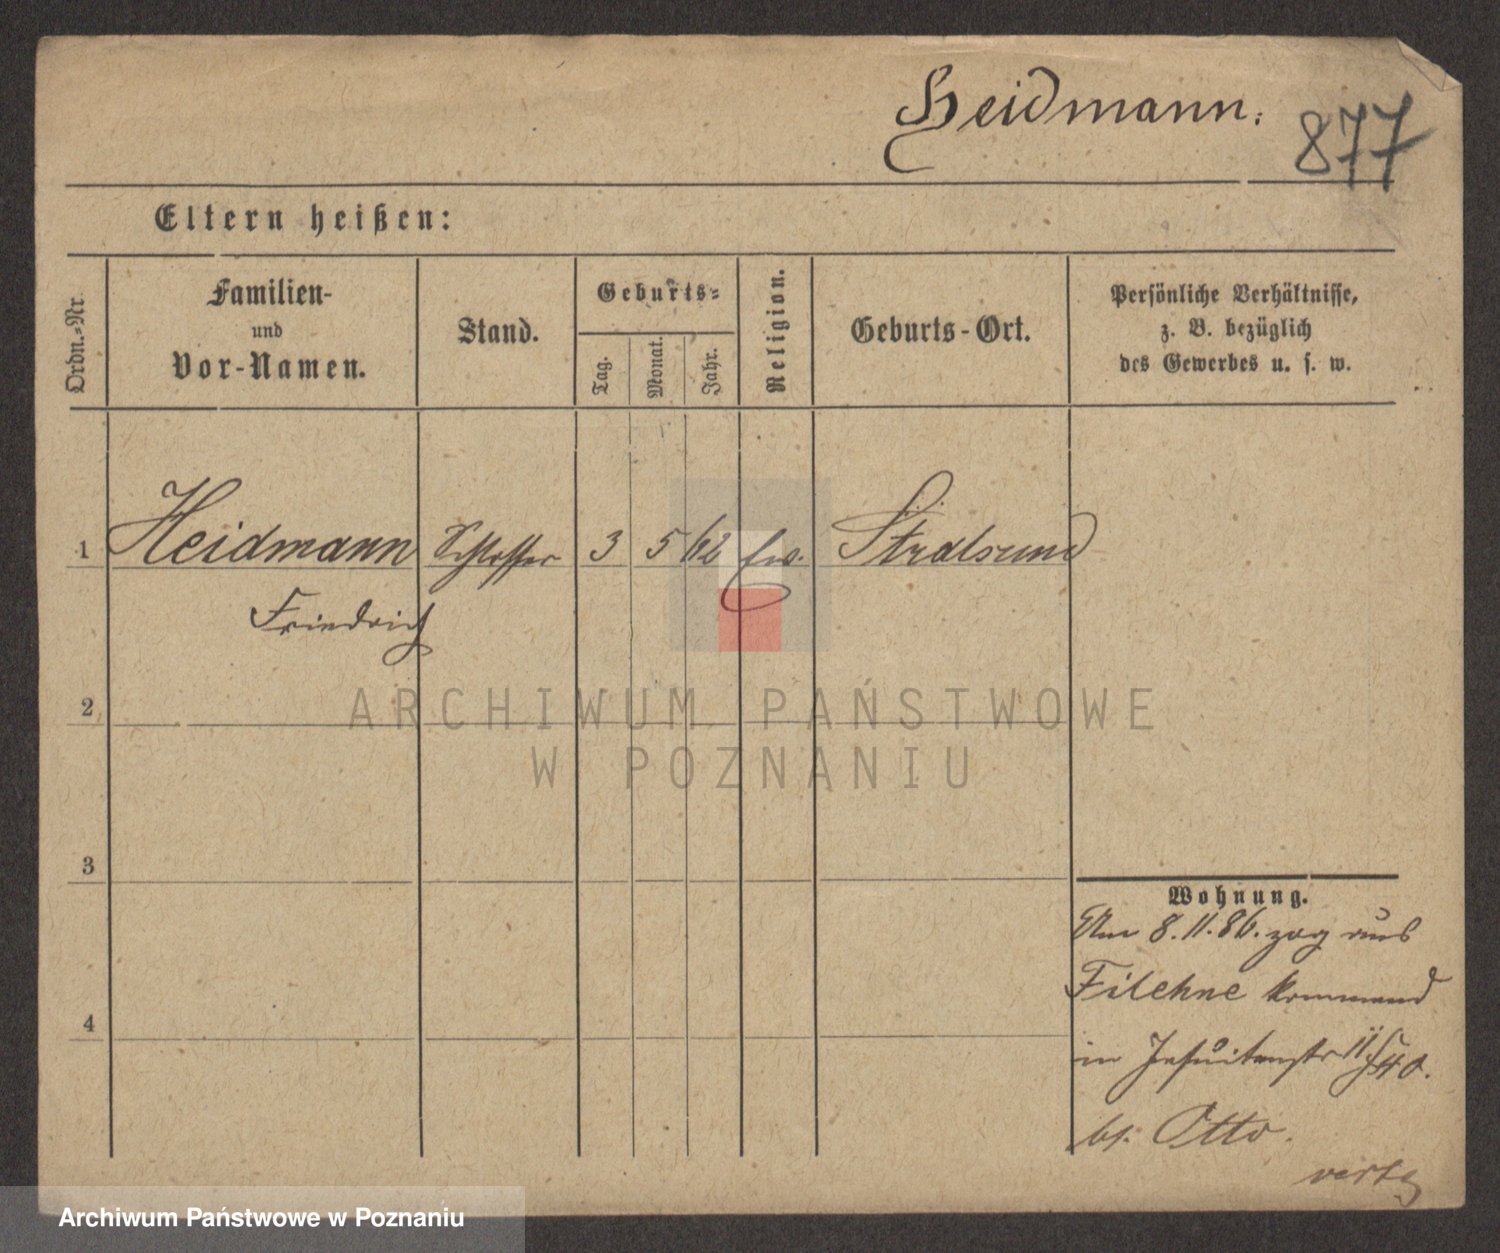 Heidmann.
877
Eltern heißen:
Ordn.-Nr.
Familien-
und
Vor-Namen.
Stand.
Geburts-
Tag.
Monat.
Jahr.
Religion.
Geburts-Ort.
Persönliche Verhältnisse,
z. B. bezüglich
des Gewerbes u. s. w.
1 Heidmann Schlosser 3 5 62 ev. Stralsund
Friedrich
2
3
4
ARCHIWUM PAŃSTWOWE
W POZNANIU
Wohnung.
Am 8.11.86. zog aus
Filehne kommend
in Jesuitenstr 11
bei Otto.
Archiwum Państwowe w Poznaniu